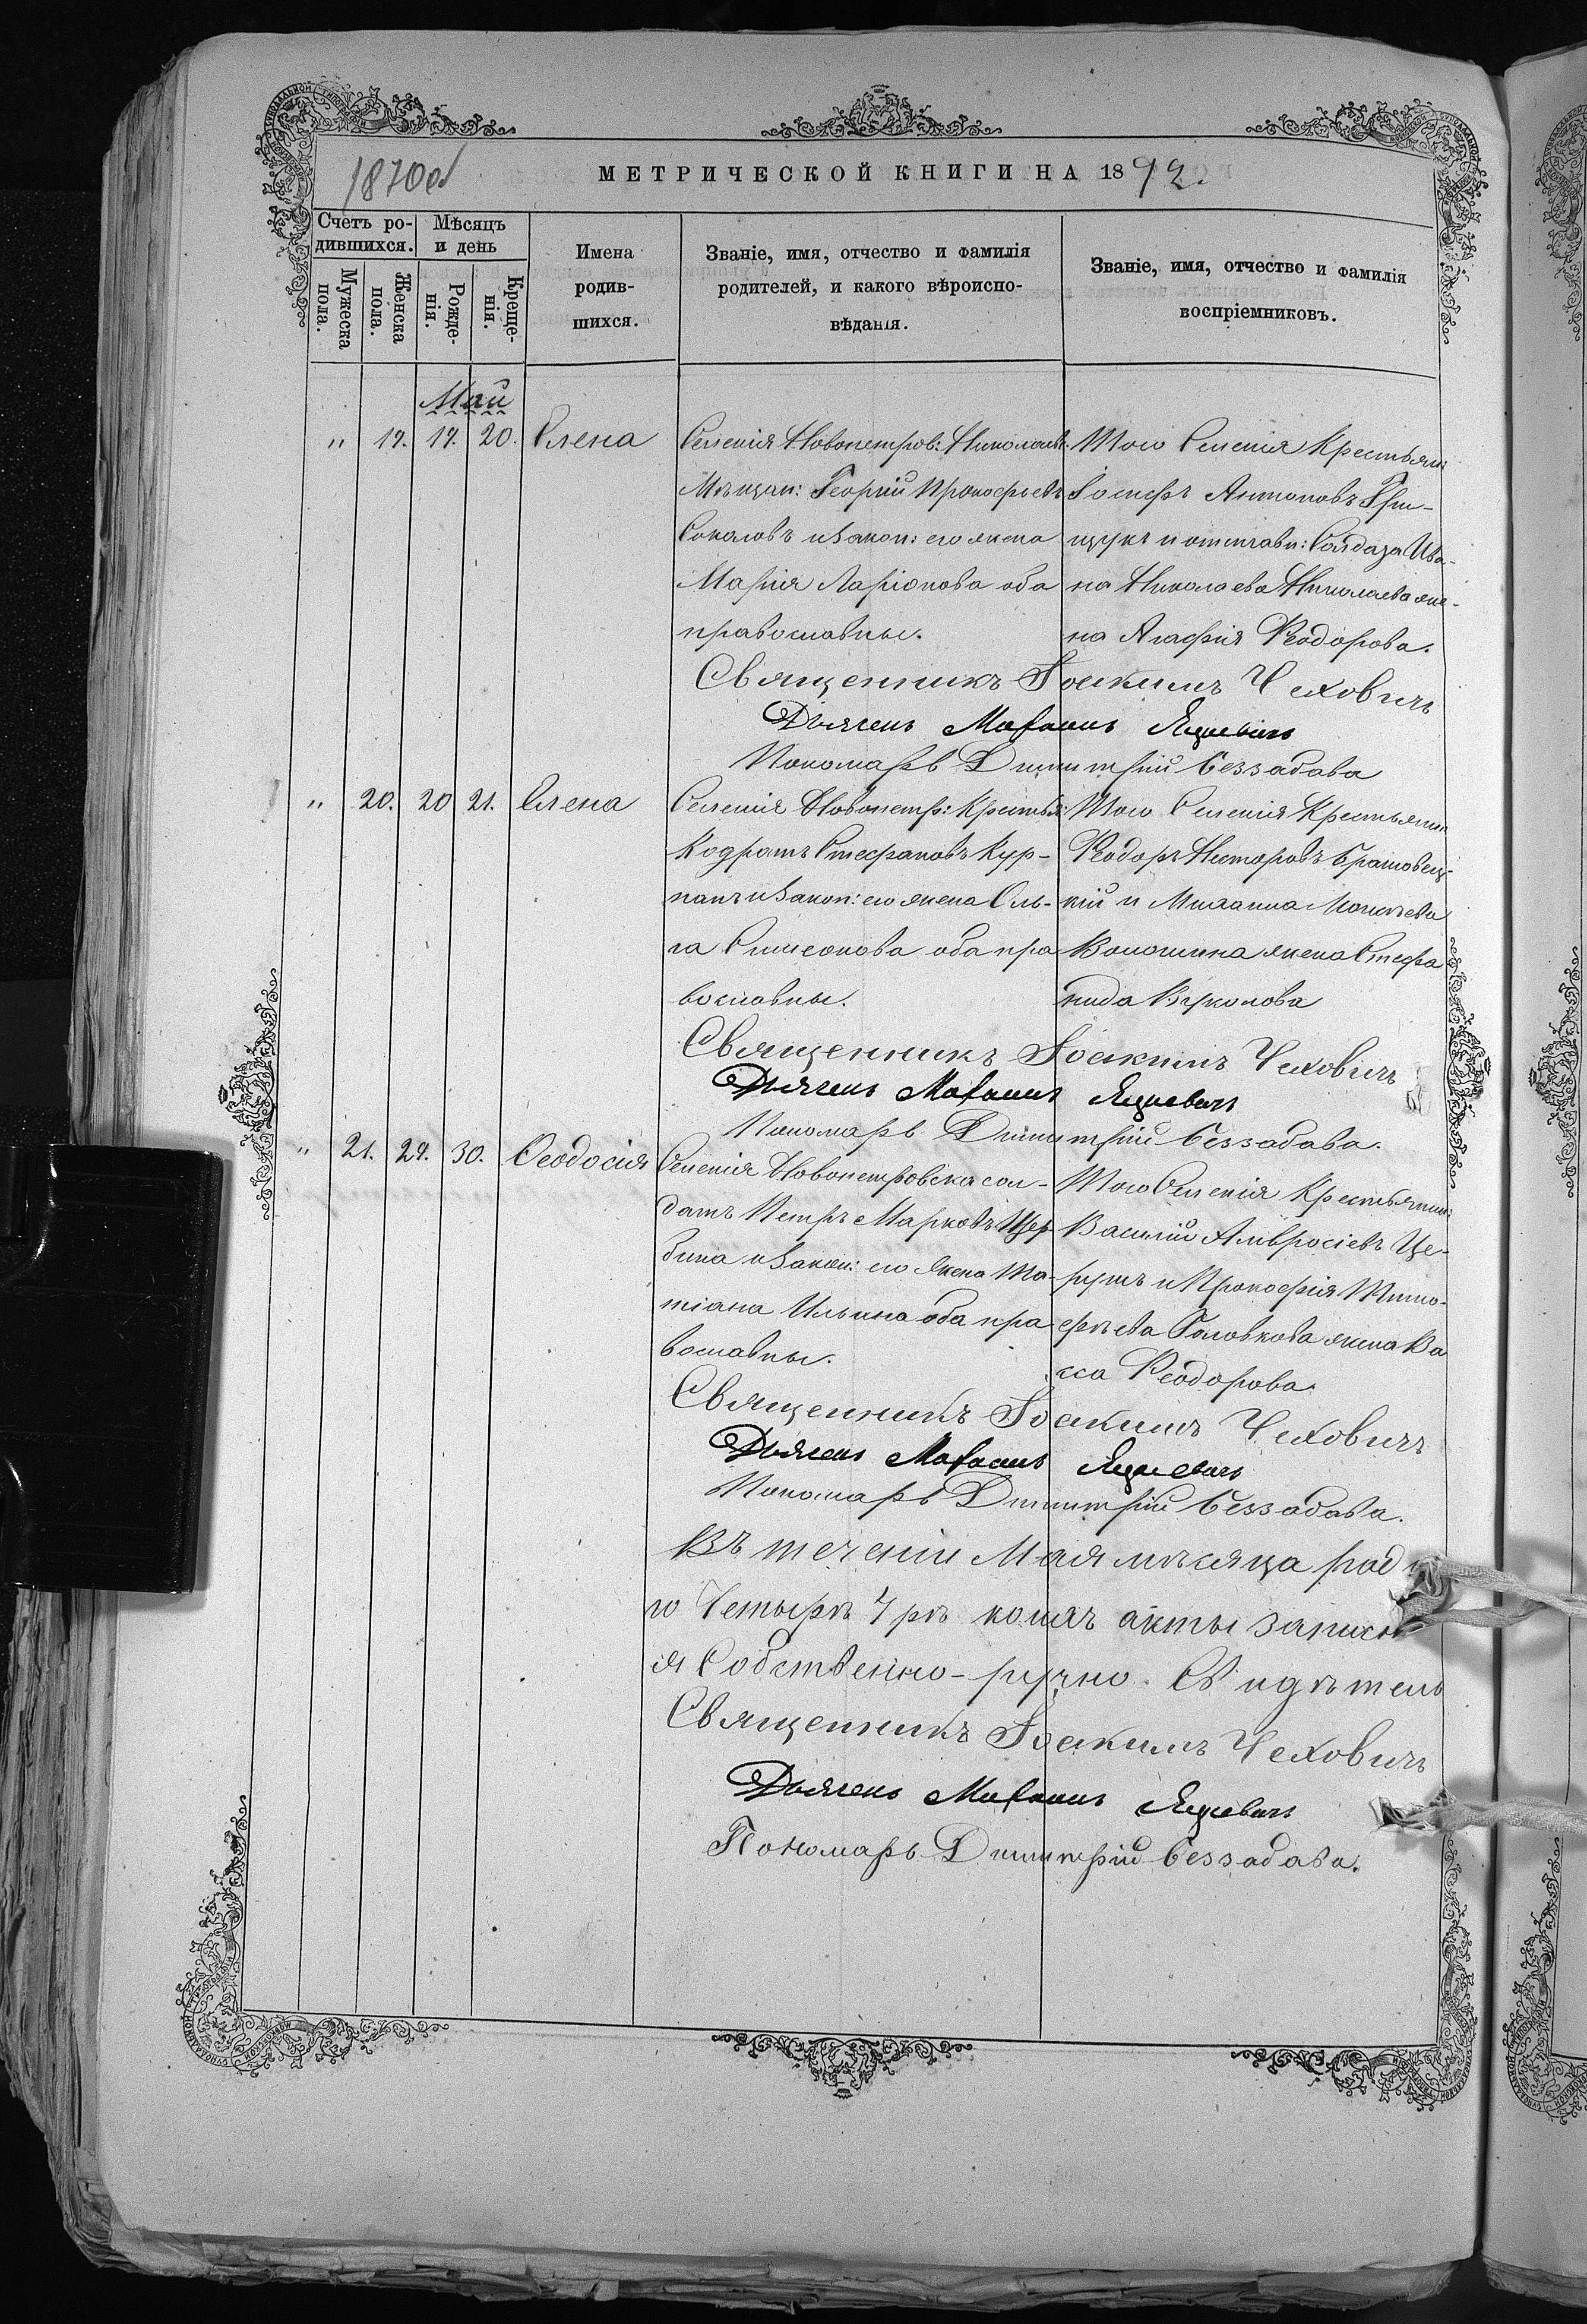 1870
МЕТРИЧЕСКОЙ КНИГИ НА 1872.
Счетъ ро-
дившихся.
Мѣсяцъ
и день
Мужеска
пола.
Женска
пола.
Рожде-
нія.
Креще-
нія.
Имена
родив-
шихся.
Званіе, имя, отчество и фамилія
родителей, и какого вѣроиспо-
вѣданія.
Званіе, имя, отчество и фамилія
воспріемниковъ.
Май
" 19. 19. 20. Елена
Селенія Новопетров: Николаев.
Мѣщан: Георгій Прокофьевъ
Соколовъ и закон: его жена
Марія Ларіонова оба
православные.
Того Селенія Крестьян:
Іосифъ Антоновъ Гри-
щукъ и отставн: Солдата Ива-
на Николаева Николаева же-
на Агафія Ѳеодорова.
Священникъ Іоакимъ Чеховичъ
Дьячекъ Яцкевичъ
Пономарь Димитрій Беззабава
" 20. 20 21. Елена
Селенія Новопетр: Крестья:
Кодратъ Стефановъ Кур-
панъ и закон: его жена Оль-
га Симеонова оба пра
вославные.
Того Селенія Крестьянин
Ѳеодоръ Несторовъ Братовец-
кій и Михаила Моисѣева
Волошина жена Стефа
нида Вуколова
Священникъ Іоакимъ Чеховичъ
Дьячекъ Яцкевичъ
Пономарь Димитрій Беззабава.
" 21. 29. 30. Ѳеодосія
Селенія Новопетровска сол-
датъ Петръ Марковъ Щер
бина и закон: его жена Та-
тіана Ильина оба пра
вославные.
Того Селенія Крестьянин:
Василій Амвросіевъ Це-
рушъ и Прокофія Тимо-
фѣева Головкова жена Ва
сса Ѳеодорова.
Священникъ Іоакимъ Чеховичъ
Дьячекъ Яцкевичъ
Пономарь Димитрій Беззабава.
Въ теченіи Мая мѣсяца род
го Четырѣ 4 рѣ коихъ акты записа
я Собственно-ручно. Свидѣтель
Священникъ Іоакимъ Чеховичъ
Дьячекъ Яцкевичъ
Пономарь Димитрій Беззабава.